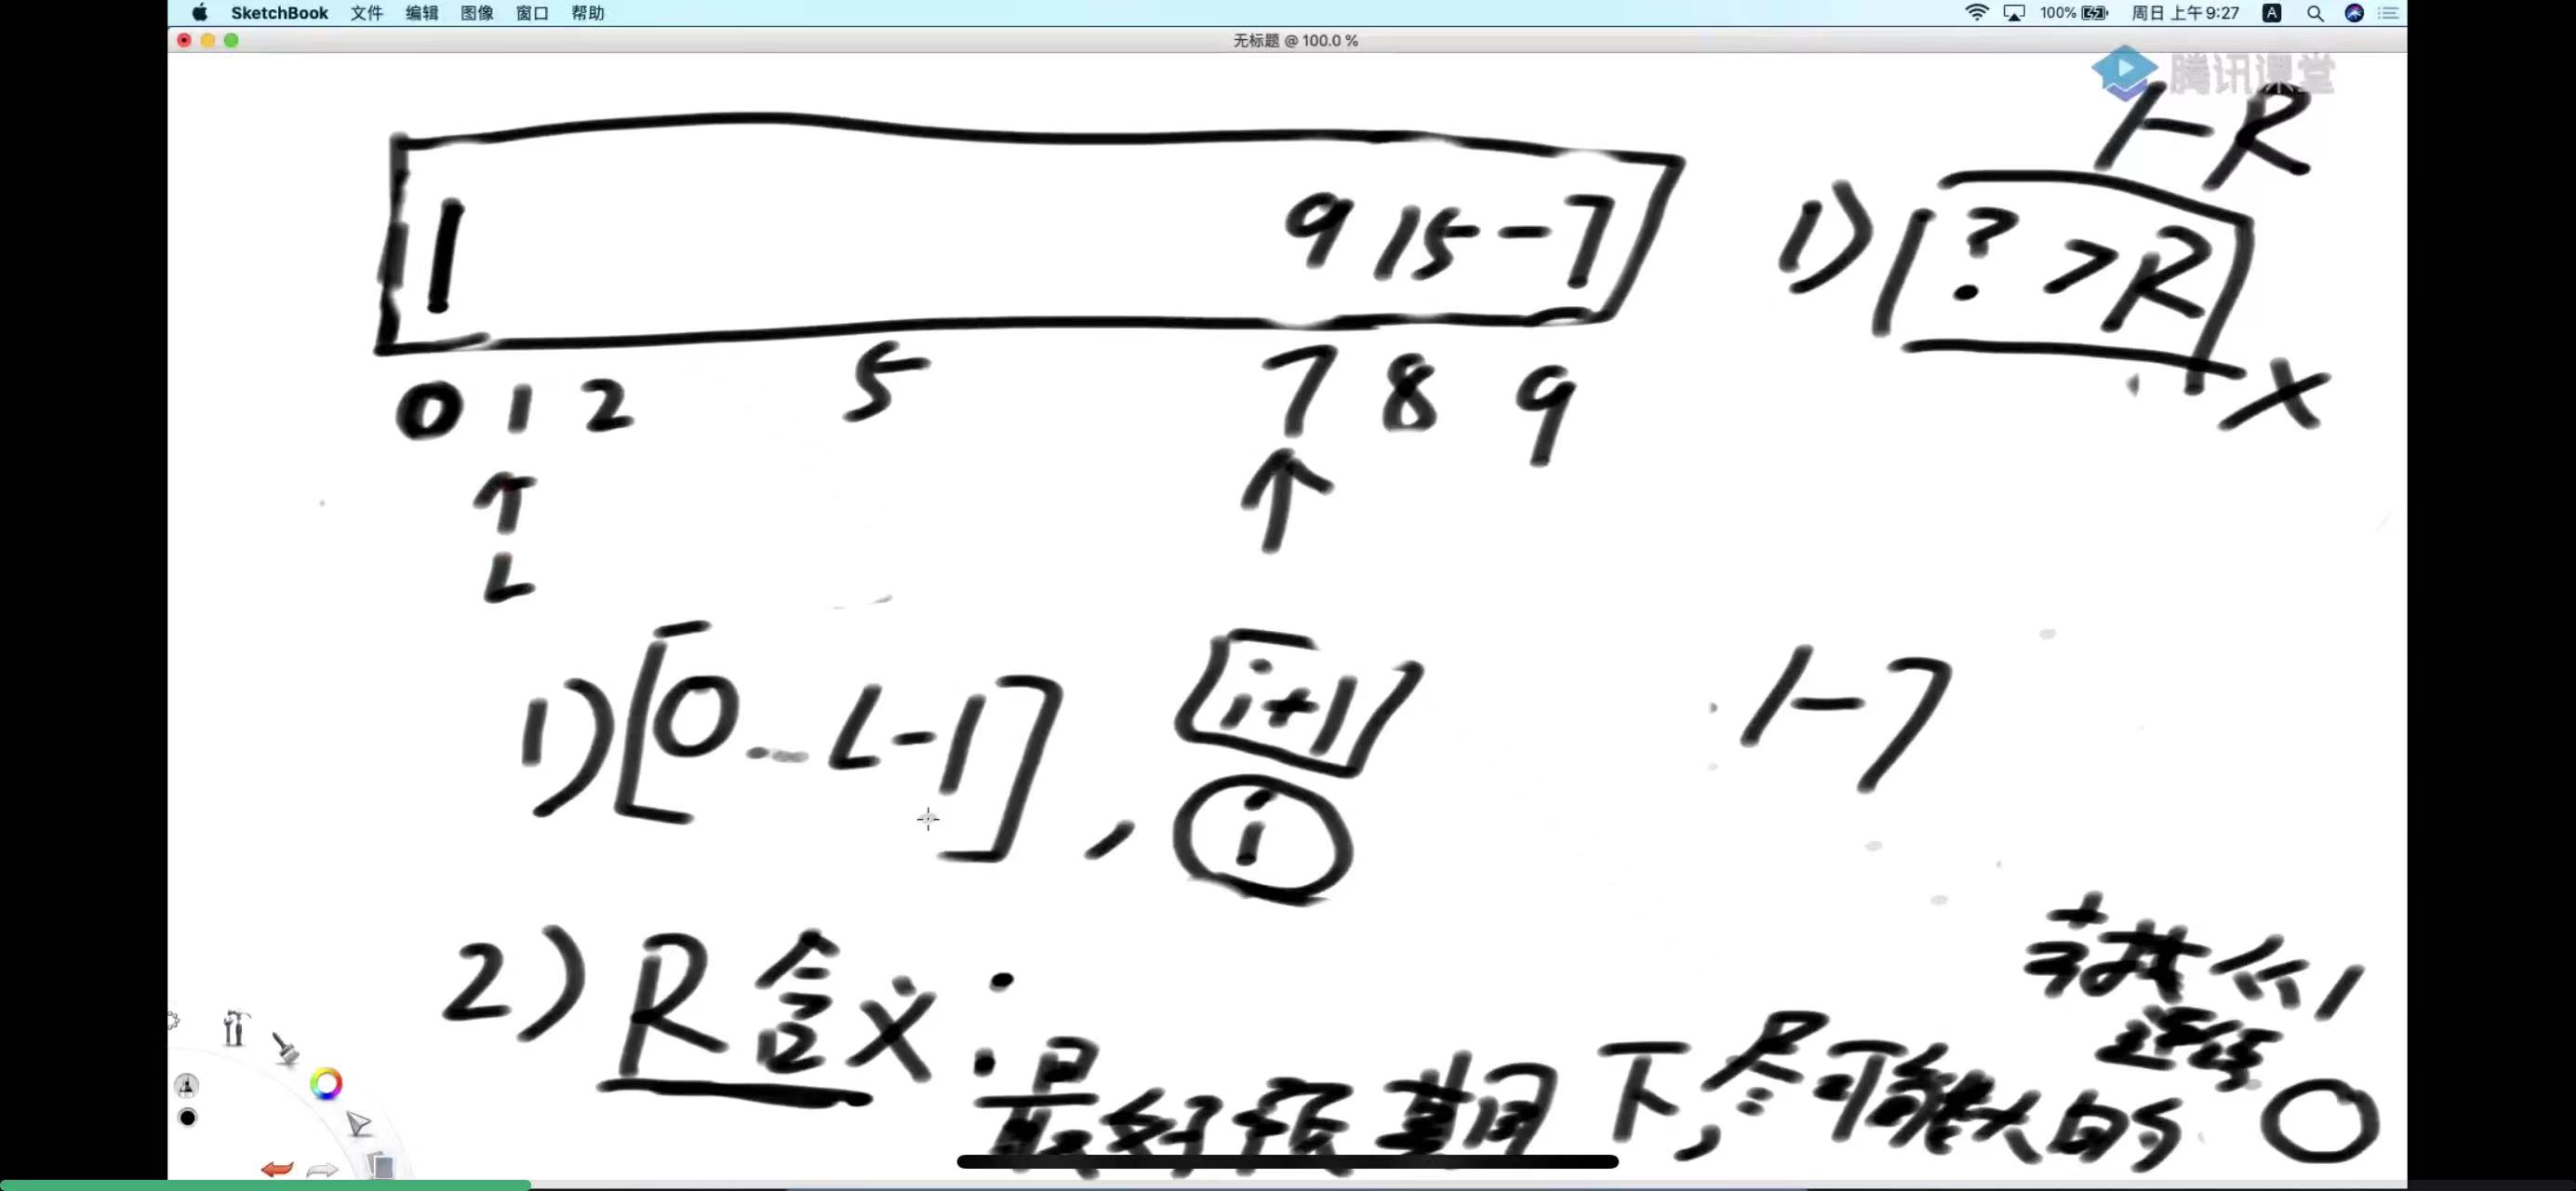 SketchBook 文件 编辑 图像 窗口 帮助 100% 周日 上午9:27 A
无标题 @ 100.0 %
腾讯课堂
1-R
1 9 15 -7
1) ? >R
X
0 1 2 5 7 8 9
L
1) [0 -- L-1] , i+1
i
1-7
2) R 含义:
最好预期下,尽可能大的